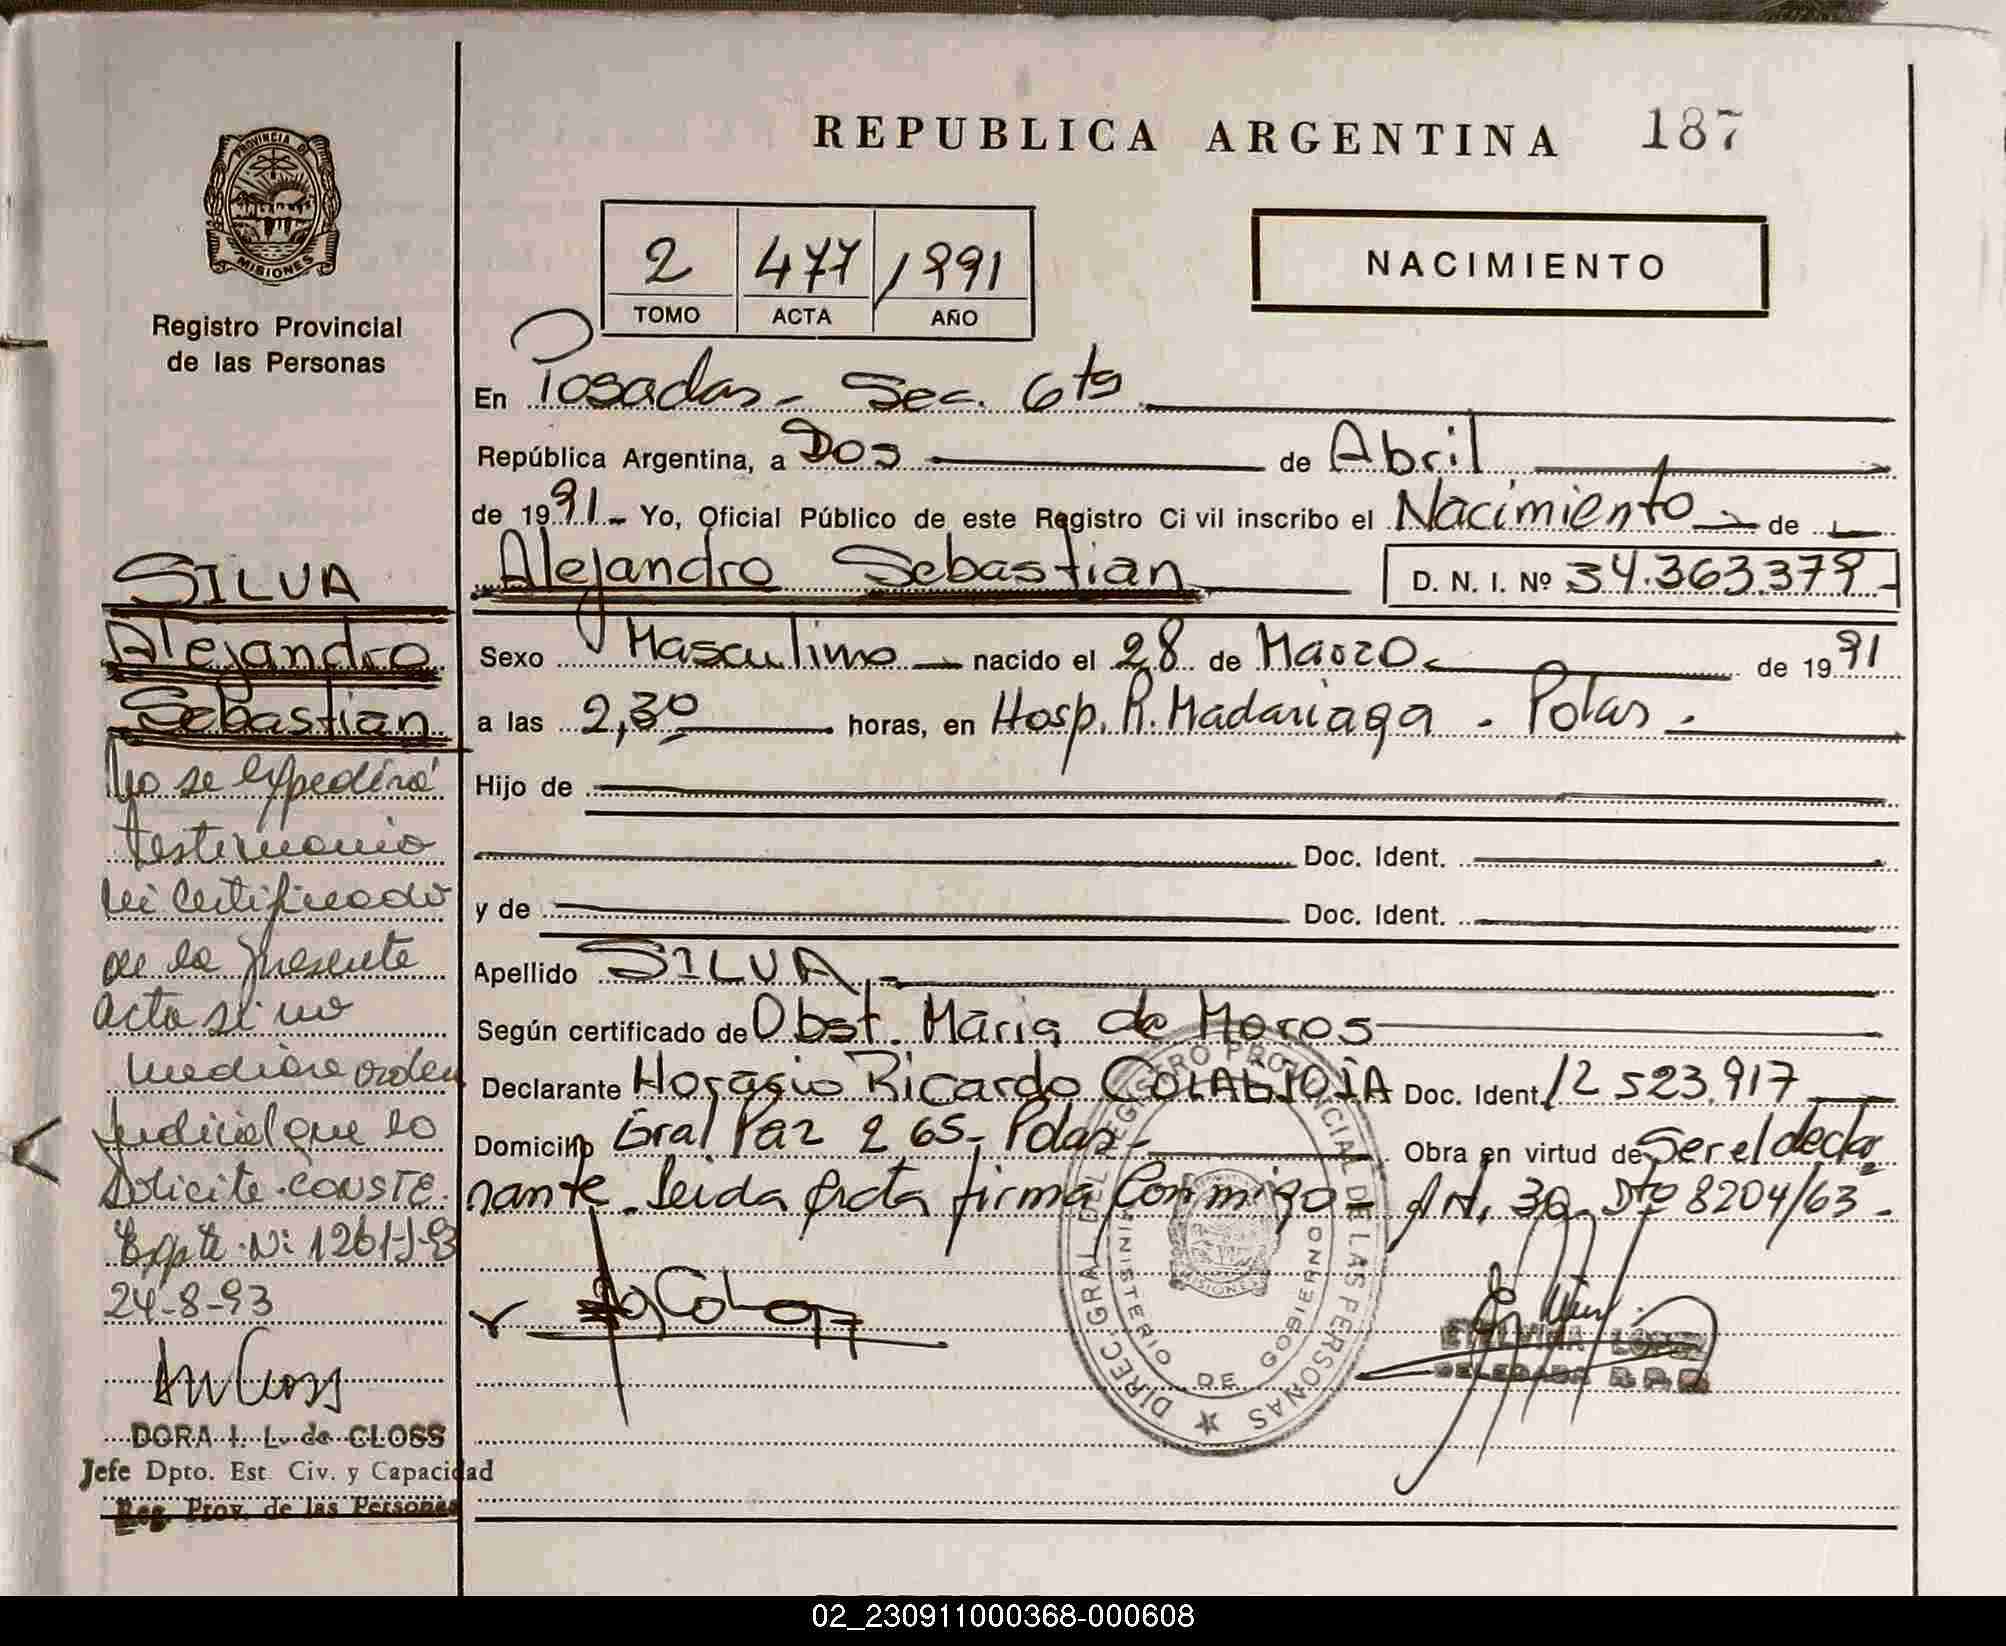 REPUBLICA ARGENTINA 187
PROVINCIA DE
MISIONES
Registro Provincial
de las Personas
2 477 1991
TOMO ACTA AÑO
NACIMIENTO
En Posadas - Sec. 6ta
República Argentina, a Dos de Abril
de 1991 - Yo, Oficial Público de este Registro Civil inscribo el Nacimiento de
Alejandro Sebastian D. N. I. Nº 34.363.379 -
Sexo Masculino nacido el 28 de Marzo de 1991
a las 2,30 horas, en Hosp. R. Madariaga - Pdas -
Hijo de
Doc. Ident.
y de Doc. Ident.
Apellido SILVA -
Según certificado de Obst. Maria de Moros
Declarante Horasio Ricardo Doc. Ident. 12 523.917
Domicilio Gral Paz 265 - Pdas - Obra en virtud de Ser el decla
rante - Leida Acta firma Conmigo - Art. 30 Dto 8204/63 -
SILVA
Alejandro
Sebastian
No se expedirá
testimonio
ni certificado
de la presente
acta si no
mediare orden
judicial que lo
solicite. CONSTE.
Expte. Nº 1261-J-93
24-8-93
DORA I. L. de CLOSS
Jefe Dpto. Est. Civ. y Capacidad
Reg. Prov. de las Personas
DIREC. GRAL. DEL REGISTRO PROVINCIAL DE LAS PERSONAS
MINISTERIO DE GOBIERNO
MISIONES
LOPEZ
DELEGADA R.P.P.
02_230911000368-000608